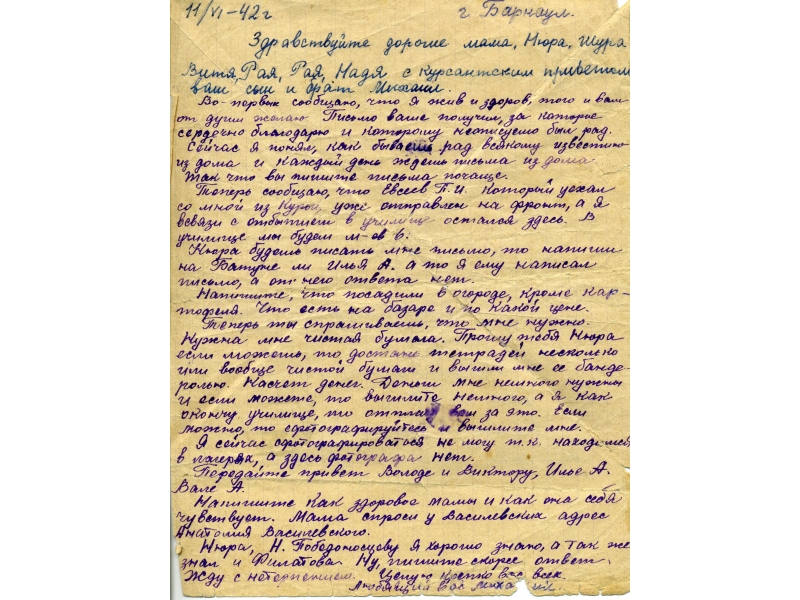 11/VI-42 г г. Барнаул.
Здравствуйте дорогие мама, Нюра, Шура
Витя, Рая, Рая, Надя с курсантским приветом
ваш сын и брат Михаил.
Во-первых сообщаю, что я жив и здоров, того и вам
от души желаю Письмо ваше получил, за которое
сердечно благодарю и которому неописуемо был рад.
Сейчас я понял, как бываешь рад всякому известию
из дома и каждый день ждешь письма из дома
Так что вы пишите письма почаще.
Теперь сообщаю, что Евсеев П.И. который уехал
со мной из уже отправлен на фронт, а я
всвязи с отбытием в училище остался здесь. В
училище мы будем м-ев 6.
Нюра будешь писать мне письмо, то напиши
на ли Илья А. а то я ему написал
письмо, а от него ответа нет.
Напишите, что посадили в огороде, кроме кар-
тофеля. Что есть на базаре и по какой цене.
Теперь ты спрашиваешь, что мне нужно.
Нужна мне чистая бумага. Прошу тебя Нюра
если можешь, то достань тетрадей несколько
или вообще чистой бумаги и вышли мне ее банде-
ролью. Насчет денег. Деньги мне немного нужны
и если можете, то вышлите немного, а я как
окончу училище, то вам за это. Если
можно, то сфотографируйтесь и вышлите мне.
Я сейчас сфотографироваться не могу т.к. находимся
в лагерях, а здесь фотографа нет.
Передайте привет Володе и Виктору, Илье А.
Вале А.
Напишите как здоровое мамы и как она себя
чувствует. Мама спроси у Василевских адрес
Анатолия Василевского.
Нюра, Н. Победоносцеву я хорошо знаю, а так же
знал и Филатова. Ну, пишите скорее ответ.
Жду с нетерпением. Целую крепко вас всех.
Любящий вас Михаил